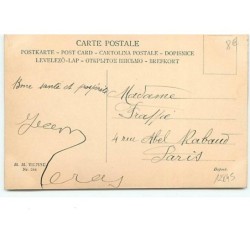 CARTE POSTALE
POSTKARTE - POST CARD - CARTOLINA POSTALE - DOPISNICE
LEVELEZŐ-LAP - ОТКРЫТОЕ ПИСЬМО - BREFKORT
Bonne santé et prospérité
Jean
Madame
4 rue Abel Rabaud
Paris
M. M. VIENNE